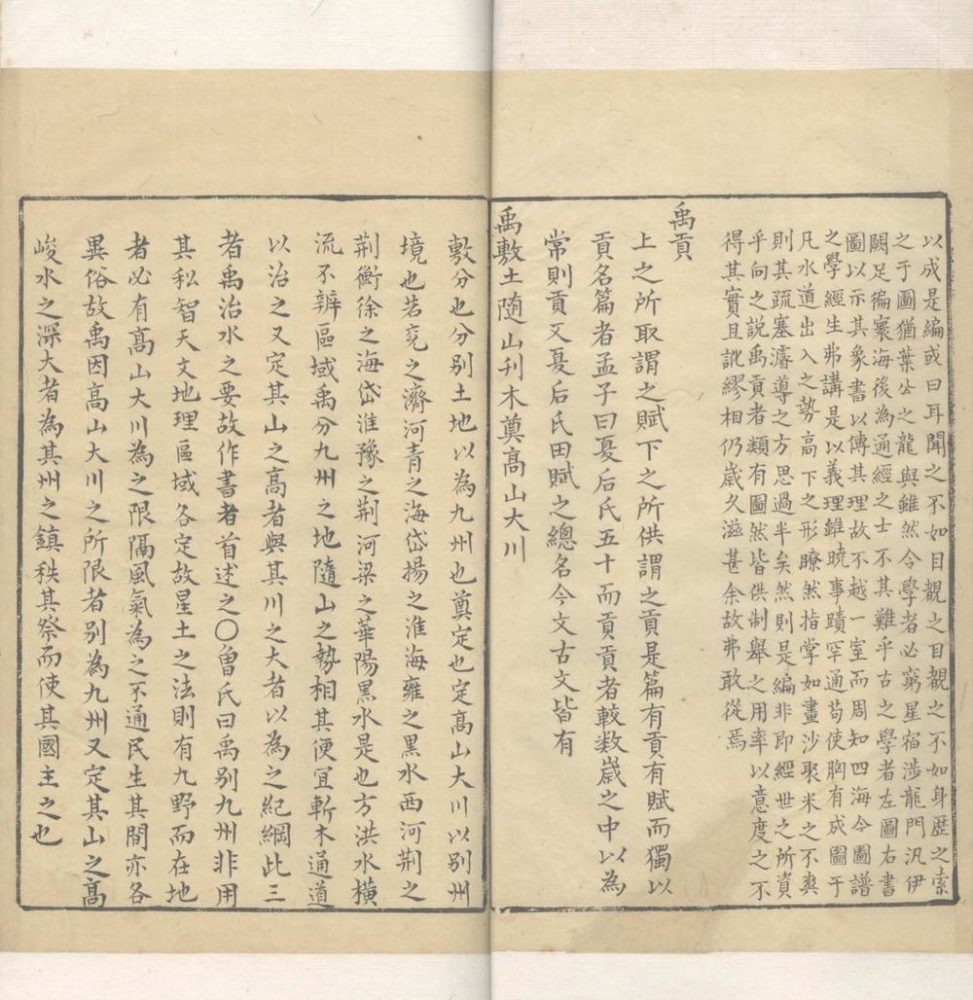 以成是編或曰耳聞之不如目覩之目覩之不如身歷之索
之于圖猶葉公之龍與雖然今學者必窮星宿涉龍門汎伊
闕足徧寰海後為通經之士不其難乎古之學者左圖右書
圖以示其象書以傳其理故不越一室而周知四海今圖譜
之學經生弗講是以義理雖曉事蹟罕通苟使胸有成圖于
凡水道出入之勢高下之形瞭然指掌如畫沙聚米之不爽
則其疏塞濬導之方思過半矣然則是編非即經世之所資
乎向之説禹貢者類有圖然皆供制舉之用率以意度之不
得其實且訛繆相仍嵗久滋甚余故弗敢從焉
禹貢
上之所取謂之賦下之所供謂之貢是篇有貢有賦而獨以
貢名篇者孟子曰夏后氏五十而貢貢者較数嵗之中以為
常則貢又夏后氏田賦之總名今文古文皆有
禹敷土随山刋木奠髙山大川
敷分也分别土地以為九州也奠定也定髙山大川以别州
境也若兗之濟河青之海岱揚之淮海雍之黒水西河荆之
荆衡徐之海岱淮豫之荆河梁之華陽黒水是也方洪水横
流不辨區域禹分九州之地隨山之勢相其便宜斬木通道
以治之又定其山之髙者與其川之大者以為之紀綱此三
者禹治水之要故作書者首述之〇曽氏曰禹别九州非用
其私智天文地理區域各定故星土之法則有九野而在地
者必有髙山大川為之限隔風氣為之不通民生其間亦各
異俗故禹因髙山大川之所限者别為九州又定其山之髙
峻水之深大者為其州之鎮秩其祭而使其國主之也